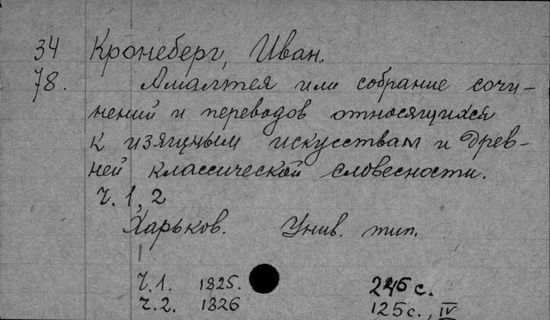 34 Кронеберг, Иван.
78. Амалтея или собрание сочи-
нений и переводов относящихся
к изящным искусствам и древ-
ней классической словесности.
Ч. 1, 2
Харьков. Унив. тип.
Ч. 1. 1825. 245 с.
Ч. 2. 1826 125 с., IV